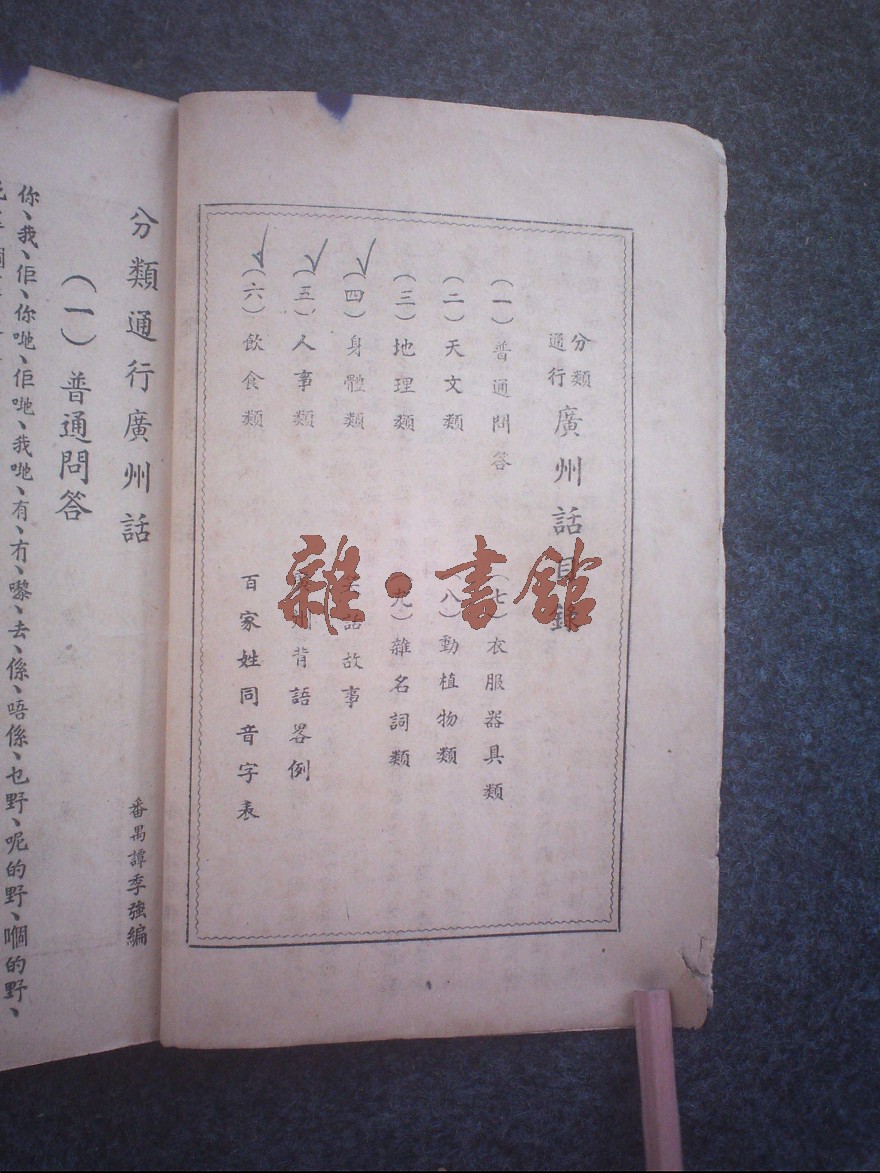 分類通行廣州話目錄
(一)普通問答
(二)天文類
(三)地理類
(四)身體類
(五)人事類
(六)飲食類
(七)衣服器具類
(八)動植物類
(九)雜名詞類
話故事
州背語畧例
百家姓同音字表
雜·書館
分類通行廣州話
番禺譚季強編
(一)普通問答
你、我、佢、你哋、佢哋、我哋、有、冇、嚟、去、係、唔係、乜野、呢的野、嗰的野、